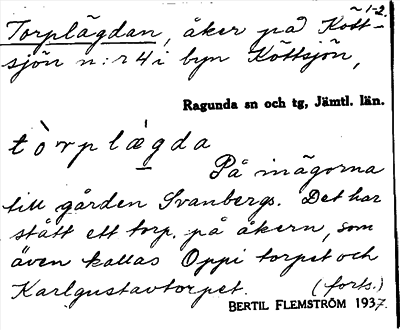 1-2.
Torplägdan, åker på Kött-
sjön n:r 4 i byn Köttsjön,
Ragunda sn och tg, Jämtl. län.
tòrplägda
På inägorna
till gården Svanbergs. Det har
stått ett torp. på åkern, som
även kallas Oppi torpet och
Karlgustavtorpet. (forts.)
BERTIL FLEMSTRÖM 1937.